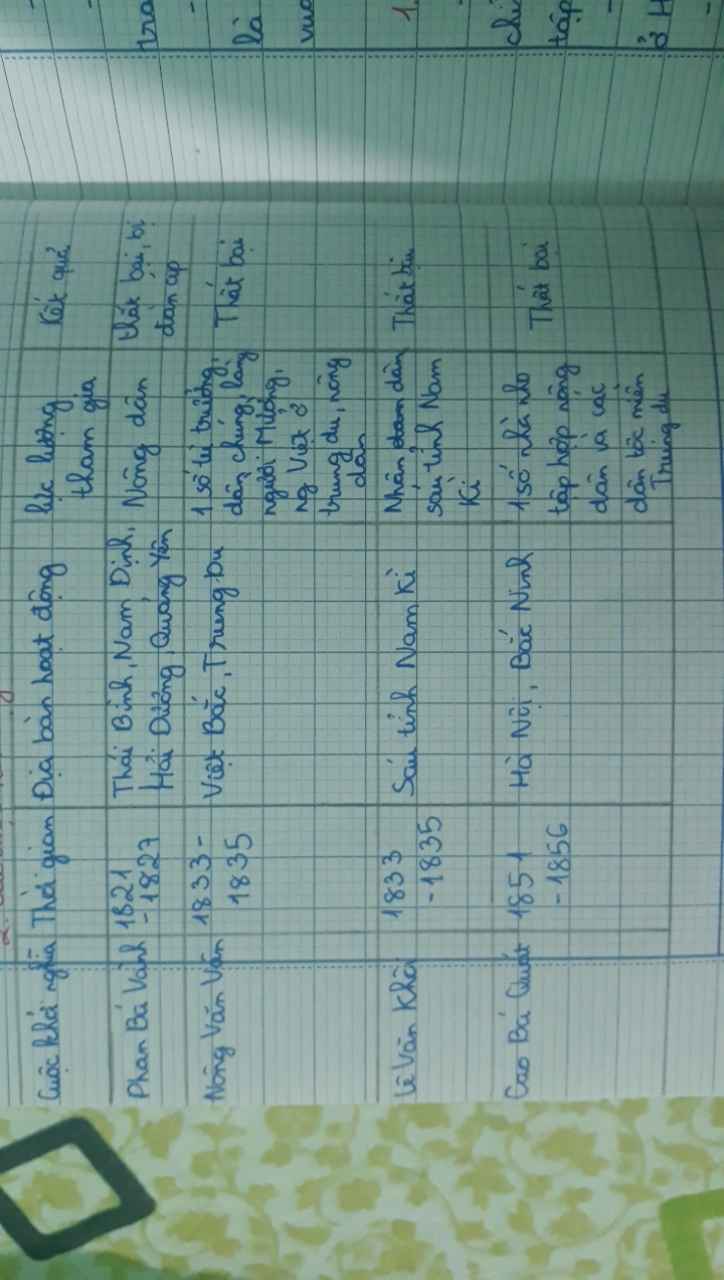 Cuộc khởi nghĩa Thời gian Địa bàn hoạt động lực lượng tham gia Kết quả
Phan Bá Vành
1821
-1827
Thái Bình, Nam Định,
Hải Dương, Quảng Yên
Nông dân
thất bại, bị
đàn áp
Nông Văn Vân
1833-
1835
Việt Bắc, Trung Du
1 số tù trưởng,
dân chúng, làng
người Mường,
ng Việt ở
trung du, nông
dân
Thất bại
Lê Văn Khôi
1833
-1835
Sáu tỉnh Nam Kì
Nhân dân
sáu tỉnh Nam
Kì
Thất bại
Cao Bá Quát
1851
-1856
Hà Nội, Bắc Ninh
1 số nhà nho
tập hợp nông
dân và các
dân tộc miền
Trung du
Thất bại
tra
-
là
vuo
1.
tập
-
ở H